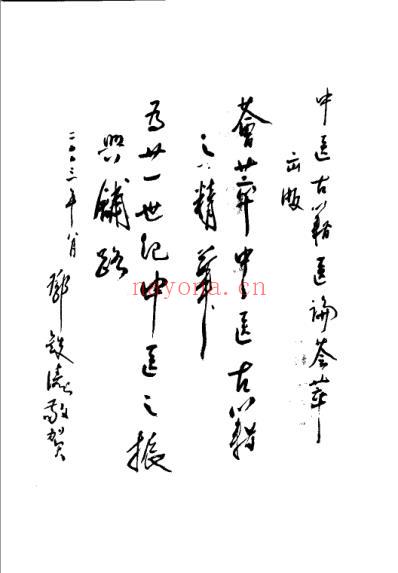 中医古籍医論荟萃
出版
薈萃中医古籍
之精華
为廿一世纪中医之振
興鋪路
二〇〇三年八月 鄧鉄濤敬贺
nayona.cn